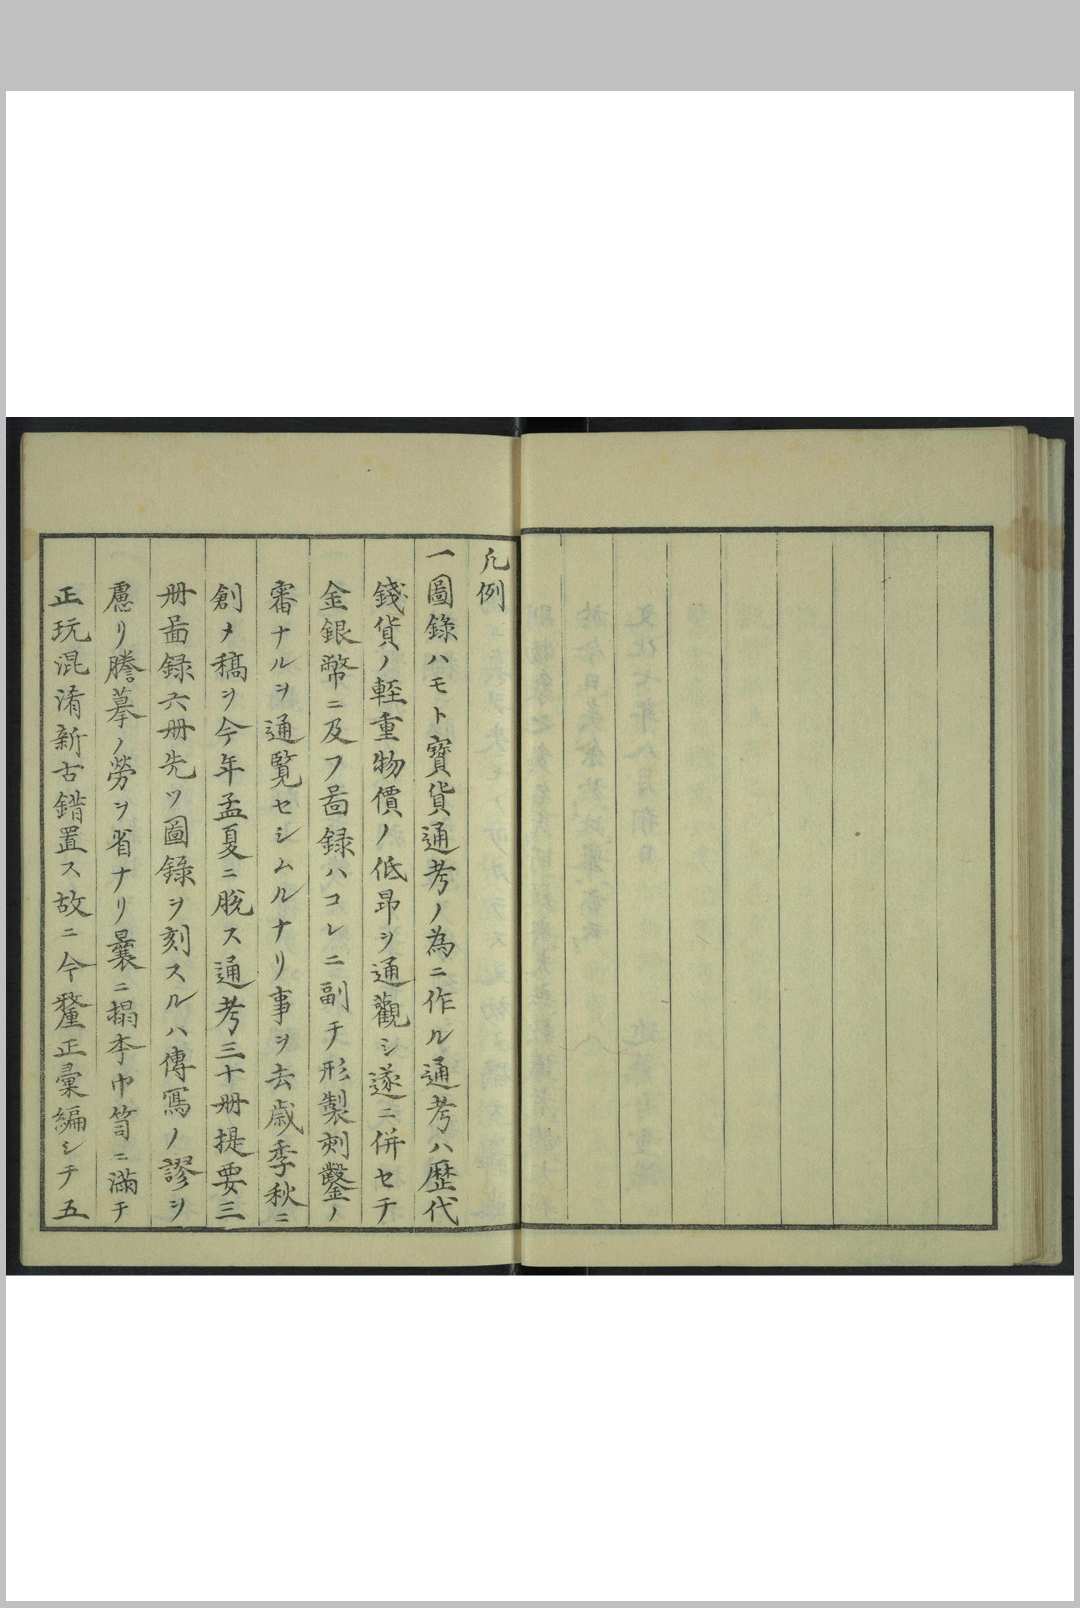 凡例
一圖錄ハモト寶貨通考ノ為ニ作ル通考ハ歷代
錢貨ノ輊重物價ノ低昂ヲ通觀シ遂ニ併セテ
金銀幣ニ及フ啚録ハコレニ副テ形製刻鑿ノ
審ナルヲ通覽セシムルナリ事ヲ去歳季秋ニ
創メ稿ヲ今年孟夏ニ脫ス通考三十册提要三
册啚録六册先ツ圖錄ヲ刻スルハ傳寫ノ謬ヲ
慮リ謄摹ノ勞ヲ省ナリ曩ニ搨本巾笥ニ滿チ
正玩混淆新古錯置ス故ニ今釐正彙編シテ五